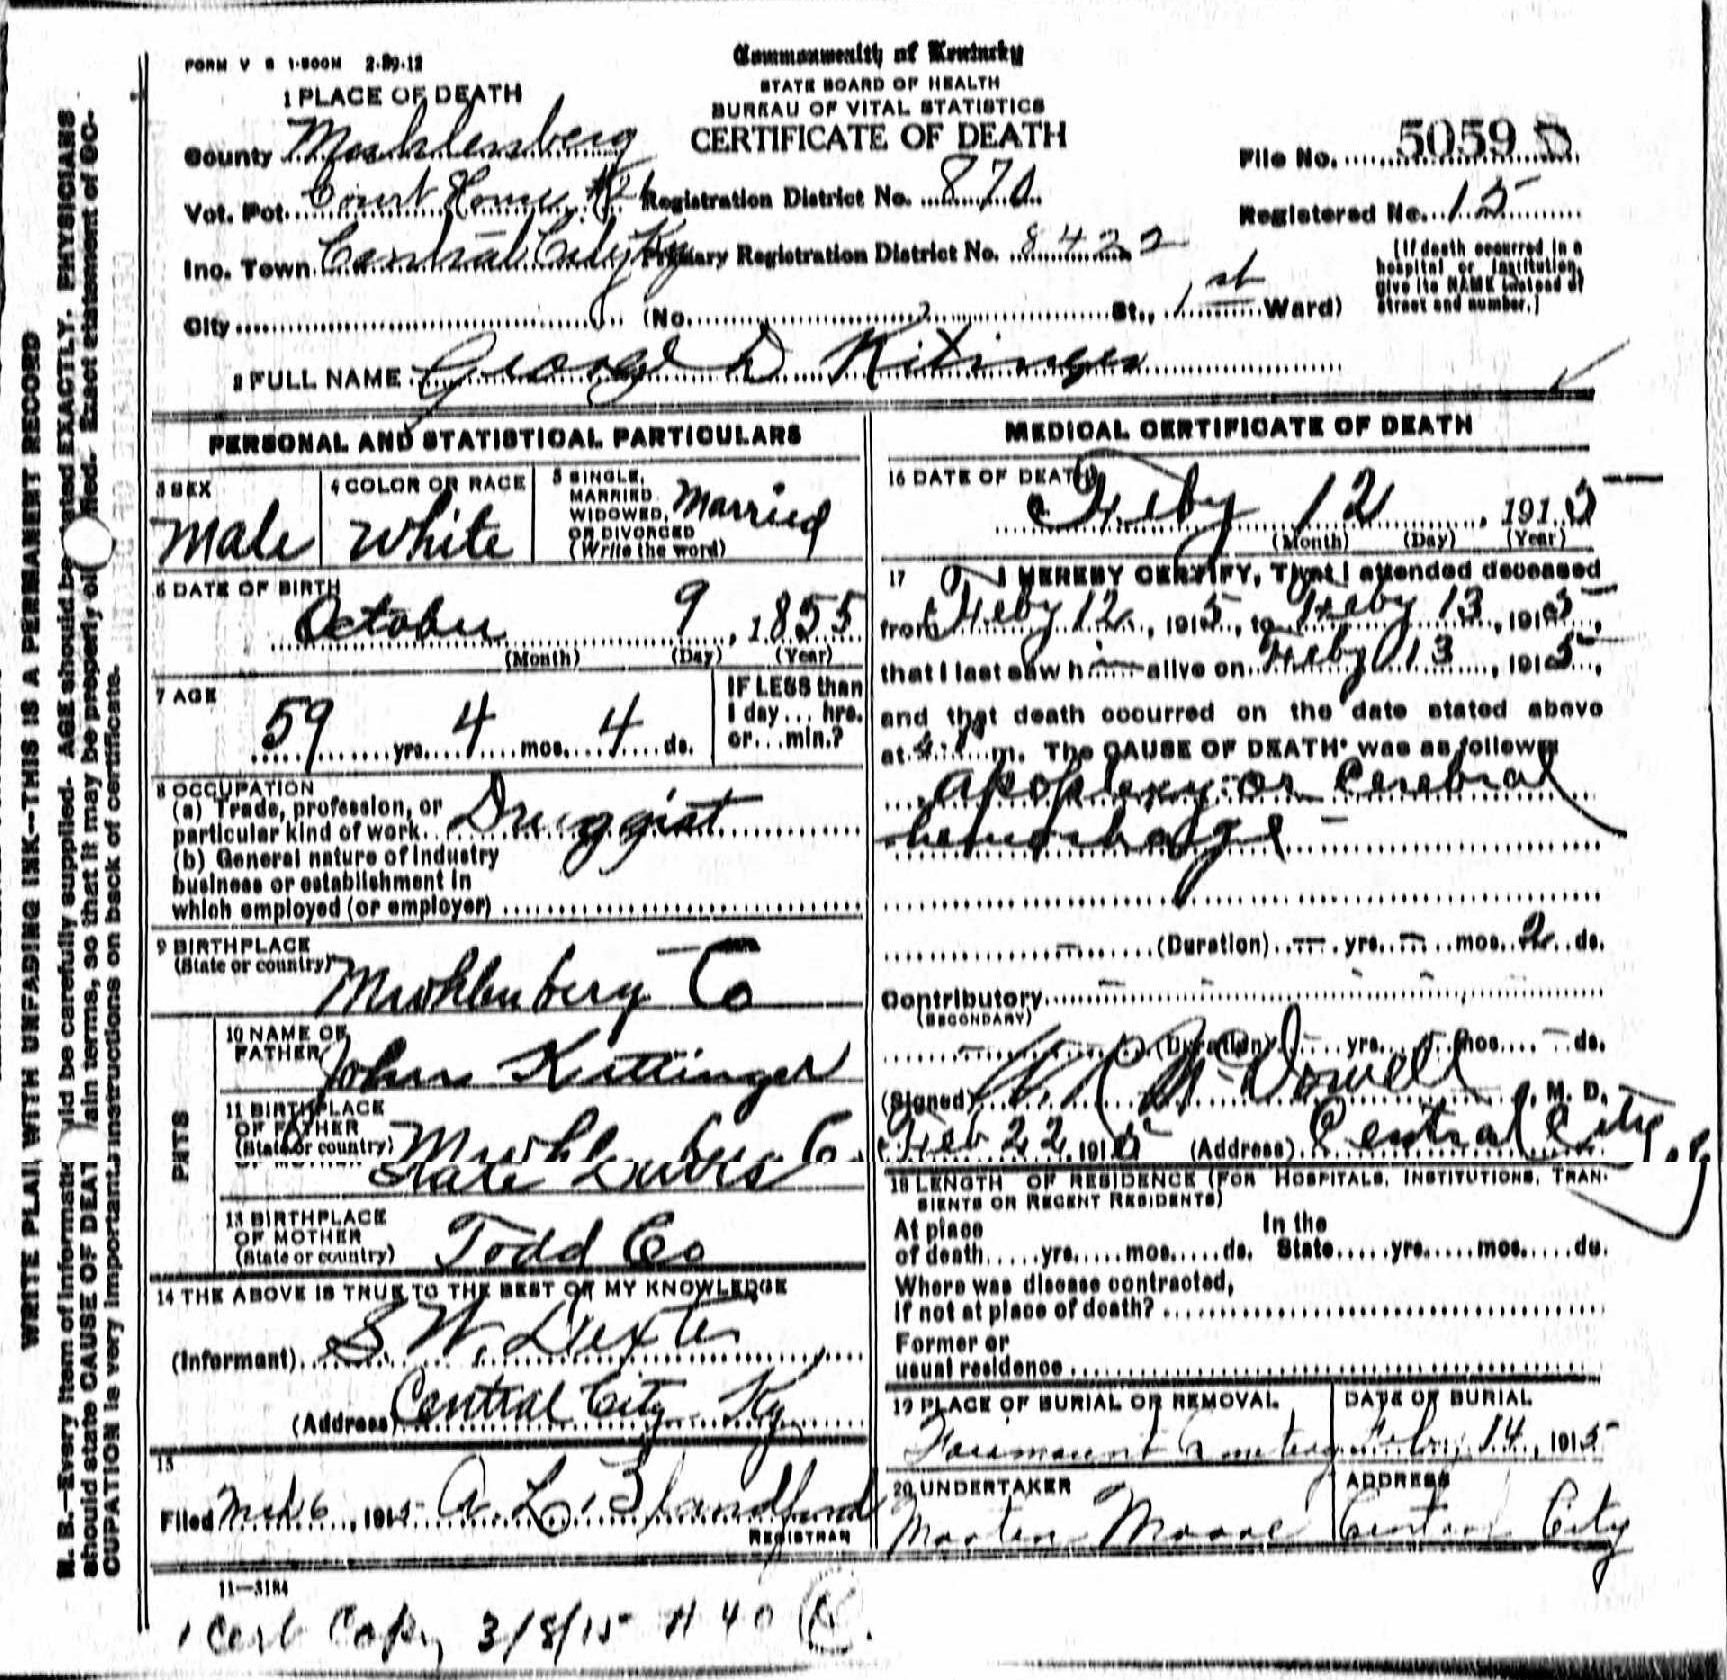 FORM V S 1-500M 2-29-12
Commonwealth of Kentucky
STATE BOARD OF HEALTH
BUREAU OF VITAL STATISTICS
CERTIFICATE OF DEATH
1 PLACE OF DEATH
County Muhlenberg
Vot. Pct. Court House #1
Inc. Town Central City Ky
City
Registration District No. 870
Primary Registration District No. 8422
(No. St., 1st Ward)
File No. 5059
Registered No. 15
(If death occurred in a
hospital or institution,
give its NAME instead of
street and number.)
2 FULL NAME George D Kitinger
PERSONAL AND STATISTICAL PARTICULARS
3 SEX
Male
4 COLOR OR RACE
White
5 SINGLE,
MARRIED
WIDOWED,
OR DIVORCED
(Write the word)
Married
6 DATE OF BIRTH
October 9, 1855
(Month) (Day) (Year)
7 AGE
59 yrs. 4 mos. 4 ds.
IF LESS than
1 day... hrs.
or...min.?
8 OCCUPATION
(a) Trade, profession, or
particular kind of work Druggist
(b) General nature of industry
business or establishment in
which employed (or employer)
9 BIRTHPLACE
(State or country)
Muhlenberg Co
10 NAME OF
FATHER John Kittinger
11 BIRTHPLACE
OF FATHER
(State or country)
13 BIRTHPLACE
OF MOTHER
(State or country) Todd Co
14 THE ABOVE IS TRUE TO THE BEST OF MY KNOWLEDGE
(Informant) S W. Dexter
(Address) Central City Ky
15
Filed Mch 6, 1915 A. L. Blandford
REGISTRAR
11-3184
1 Cert Copy 3/8/15
MEDICAL CERTIFICATE OF DEATH
16 DATE OF DEATH
Feby 12, 1915
(Month) (Day) (Year)
17 I HEREBY CERTIFY, That I attended deceased
from Feby 12, 1915, to Feby 13, 1915,
that I last saw h alive on Feby 13, 1915,
and that death occurred on the date stated above
at m. The CAUSE OF DEATH was as follows
Apoplexy or Cerebral
hemorhage
(Duration) yrs. mos. 2 ds.
Contributory
(SECONDARY)
(Duration) yrs. mos. ds.
(Signed) McDowell, M. D.
Feb 22, 1915 (Address) Central City
18 LENGTH OF RESIDENCE (FOR HOSPITALS, INSTITUTIONS, TRAN-
SIENTS OR RECENT RESIDENTS)
At place
of death yrs. mos. ds.
In the
State yrs. mos. ds.
Where was disease contracted,
if not at place of death?
Former or
usual residence
19 PLACE OF BURIAL OR REMOVAL
DATE OF BURIAL
14, 1915
20 UNDERTAKER
Marten Moore
ADDRESS
Central City
WRITE PLAI WITH UNFADING INK--THIS IS A PERMANENT RECORD